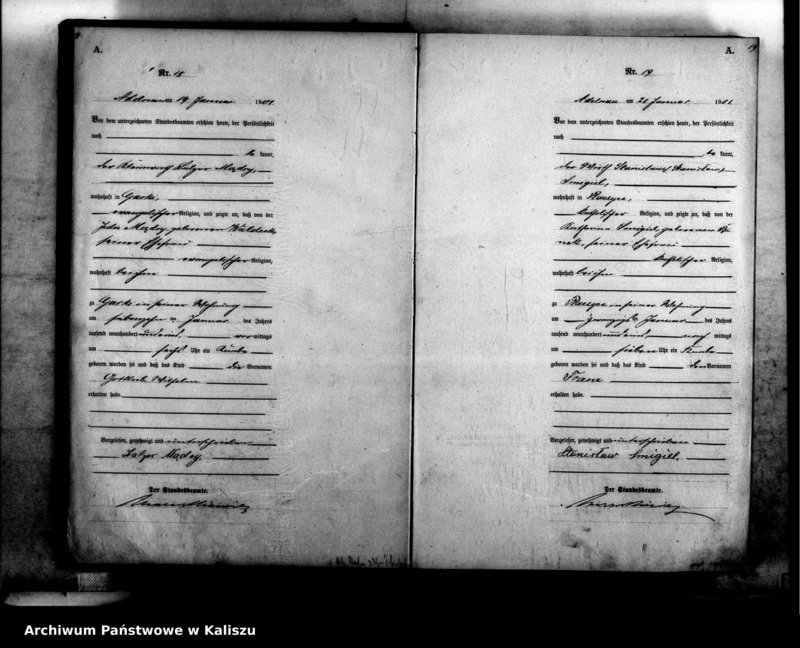 A.
Nr. 18
Adelnau am 19 Januar 1901.
Vor dem unterzeichneten Standesbeamten erschien heute, der Persönlichkeit
nach
be kannt,
der
wohnhaft in Garki,
evangelischer Religion, und zeigte an, daß von der
geborenen
seiner Ehefrau
evangelischer Religion,
wohnhaft bei ihm
zu Garki in seiner Wohnung
am siebzehn ten Januar des Jahres
tausend neunhundert und eins, vor mittags
um sechs Uhr ein Knabe
geboren worden sei und daß das Kind die Vornamen
Gottlieb Wilhelm
erhalten habe.
Vorgelesen, genehmigt und unterschrieben
Der Standesbeamte.
A.
19
Nr. 19
Adelnau am 21 Januar 1901.
Vor dem unterzeichneten Standesbeamten erschien heute, der Persönlichkeit
nach
be kannt,
der Wirth Stanislaus
wohnhaft in
katholischer Religion, und zeigte an, daß von der
Katharina geborenen
seiner Ehefrau
katholischer Religion,
wohnhaft bei ihm
zu in seiner Wohnung
am zwanzigsten Januar des Jahres
tausend neunhundert und eins, nach mittags
um sieben Uhr ein Knabe
geboren worden sei und daß das Kind den Vornamen
Franz
erhalten habe.
Vorgelesen, genehmigt und unterschrieben
Stanisław Smigill.
Der Standesbeamte.
Archiwum Państwowe w Kaliszu